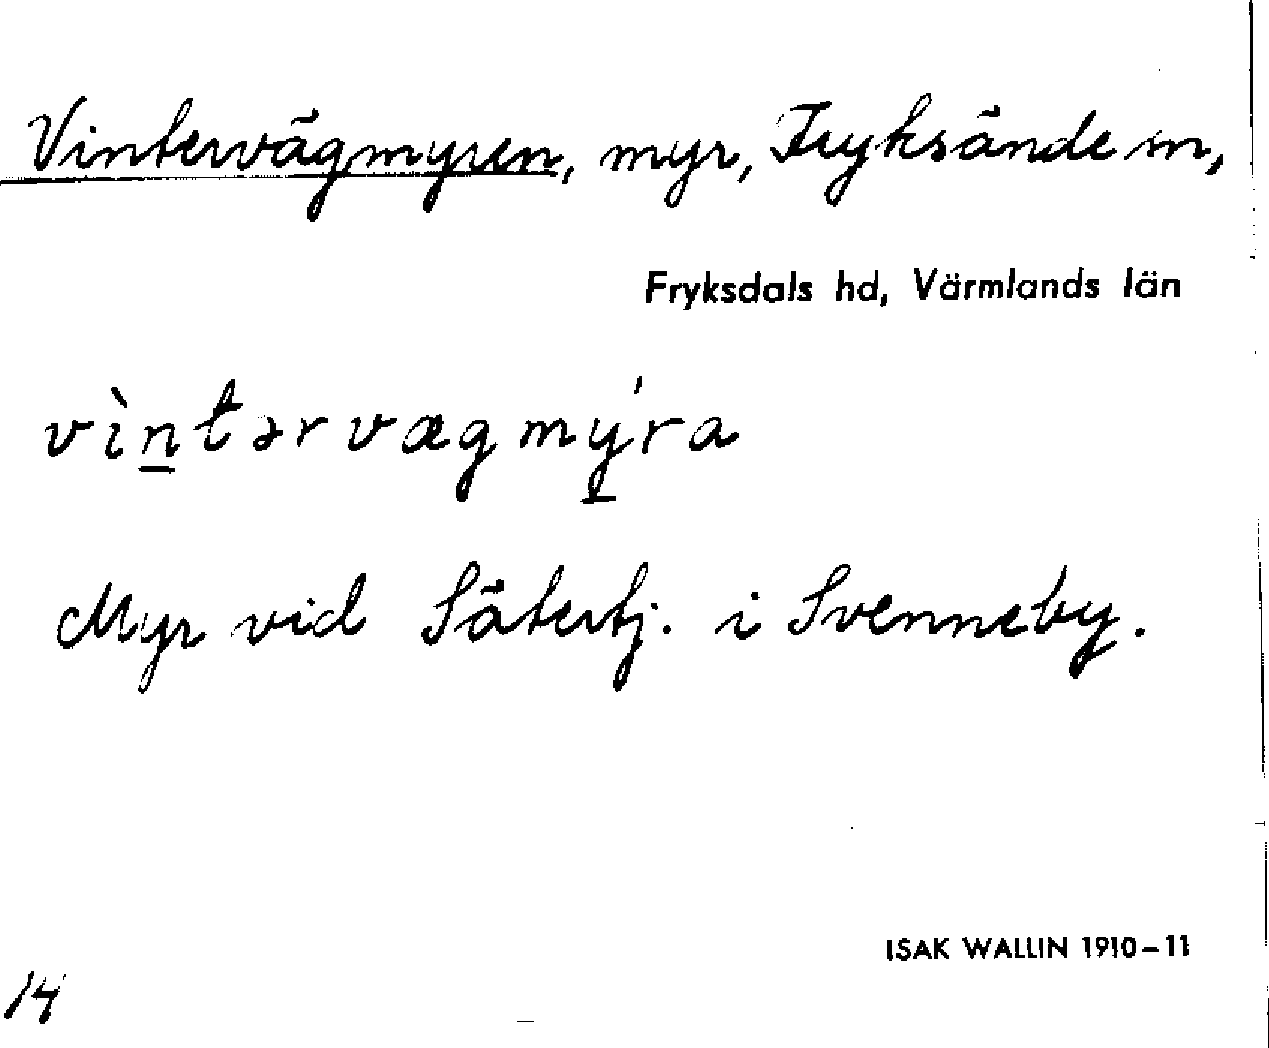 Vintervägmyren, myr, Fryksände sn,
Fryksdals hd, Värmlands län
vìn̲tərvægmý̲ra
Myr vid Sätertj. i Svenneby.
ISAK WALLIN 1910–11
14